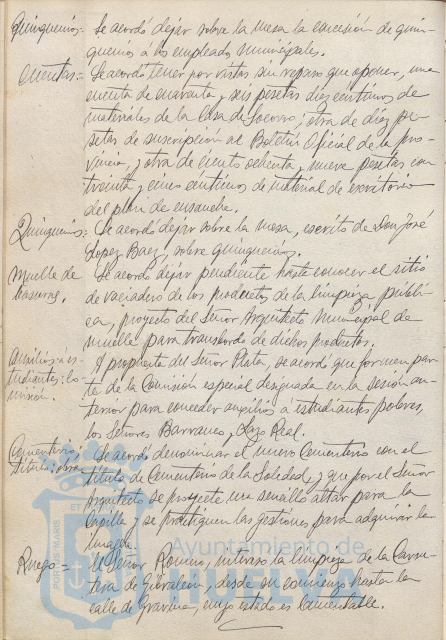 Quinquenios= Se acordó dejar sobre la mesa la concesión de quin-
quenios á los empleados municipales.
Cuentas= Se acordó tener por vistas sin reparo que oponer, una
cuenta de cuarenta y seis pesetas diez céntimos de
materiales de la Casa de Socorro; otra de diez pe-
setas de suscripción al Boletín Oficial de la pro-
vincia, y otra de ciento ochenta y nueve pesetas con
treinta y cinco céntimos de material de escritorio
del plan de ensanche.
Quinquenios= Se acordó dejar sobre la mesa, escrito de Don José
Lopez Baez, sobre quinquenios.
Muelle de
basuras. Se acordó dejar pendiente hasta conocer el sitio
de vaciadero de los productos de la limpieza públi-
ca, proyecto del Señor Arquitecto Municipal de
muelle para transbordo de dichos productos.
Auxilios á es-
tudiantes: co-
misión. A propuesta del Señor Plata, se acordó que formen par-
te de la Comisión especial designada en la sesión an-
terior para conceder auxilios á estudiantes pobres,
los Señores Barranco y Lazo Real.
Cementerio:
título: obra Se acordó denominar el nuevo Cementerio con el
título de Cementerio de la Soledad, y que por el Señor
Arquitecto se proyecte un sencillo altar para la
Capilla y se practiquen las gestiones para adquirir la
imagen.
Ruego= El Señor Romero, interesó la limpieza de la Carre-
tera de Gibraleón, desde su comienzo hasta la
calle de Gravina, cuyo estado es lamentable.
PORTUS MARIS ET
Ayuntamiento de
HUELVA